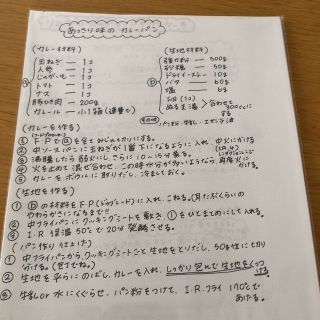 あっさり味の カレーパン
(カレー材料)
玉ねぎ ー 1コ
人参 ー 1コ
じゃがいも ー 1コ
トマト ー 1コ
ナス ー 1コ
豚ひき肉 ー 200g
カレールー ー 小1箱 (
(生地材料)
強力粉 ー 500g
砂糖 ー 50g
ドライイースト ー 10g
バター ー 60g
塩 ー 6g
卵 (1コ)
ぬるま湯 > 合わせて 300ccにする
パン粉・牛乳・
(カレーを作る)
① F・Pで ⓐ を全てみじん切りにする。
② 中ソースパンに玉ねぎが1番下になるように入れ、中火にかける
③ 沸騰したら弱火にし、さらに10〜15分煮る。
④ 火を止めて混ぜ合わせ、この時水分が多いようなら再度火にかける。
⑤ カレーをボウルに取りだし、冷ましておく。
(生地を作る)
① ⓑ の材料をF・P(ドゥブレード)に入れ、こねる。(耳たぶくらいのやわらかさになるまで!!)
② 中フライパンにクッキングシートを敷き、①をひとまとめにして入れる。
③ I.R. 保温 50℃で 20分 発酵させる。
(パン作り 仕上げ)
① 中フライパンからクッキングシートごと生地をとりだし、50g位に切り分ける。(包丁でね。)
② 生地を平らにのばし、カレーを入れ、しっかり包んで生地をくっつける
③ 牛乳 or 水にくぐらせ、パン粉をつけて、I.R.フライ 170℃であげる。